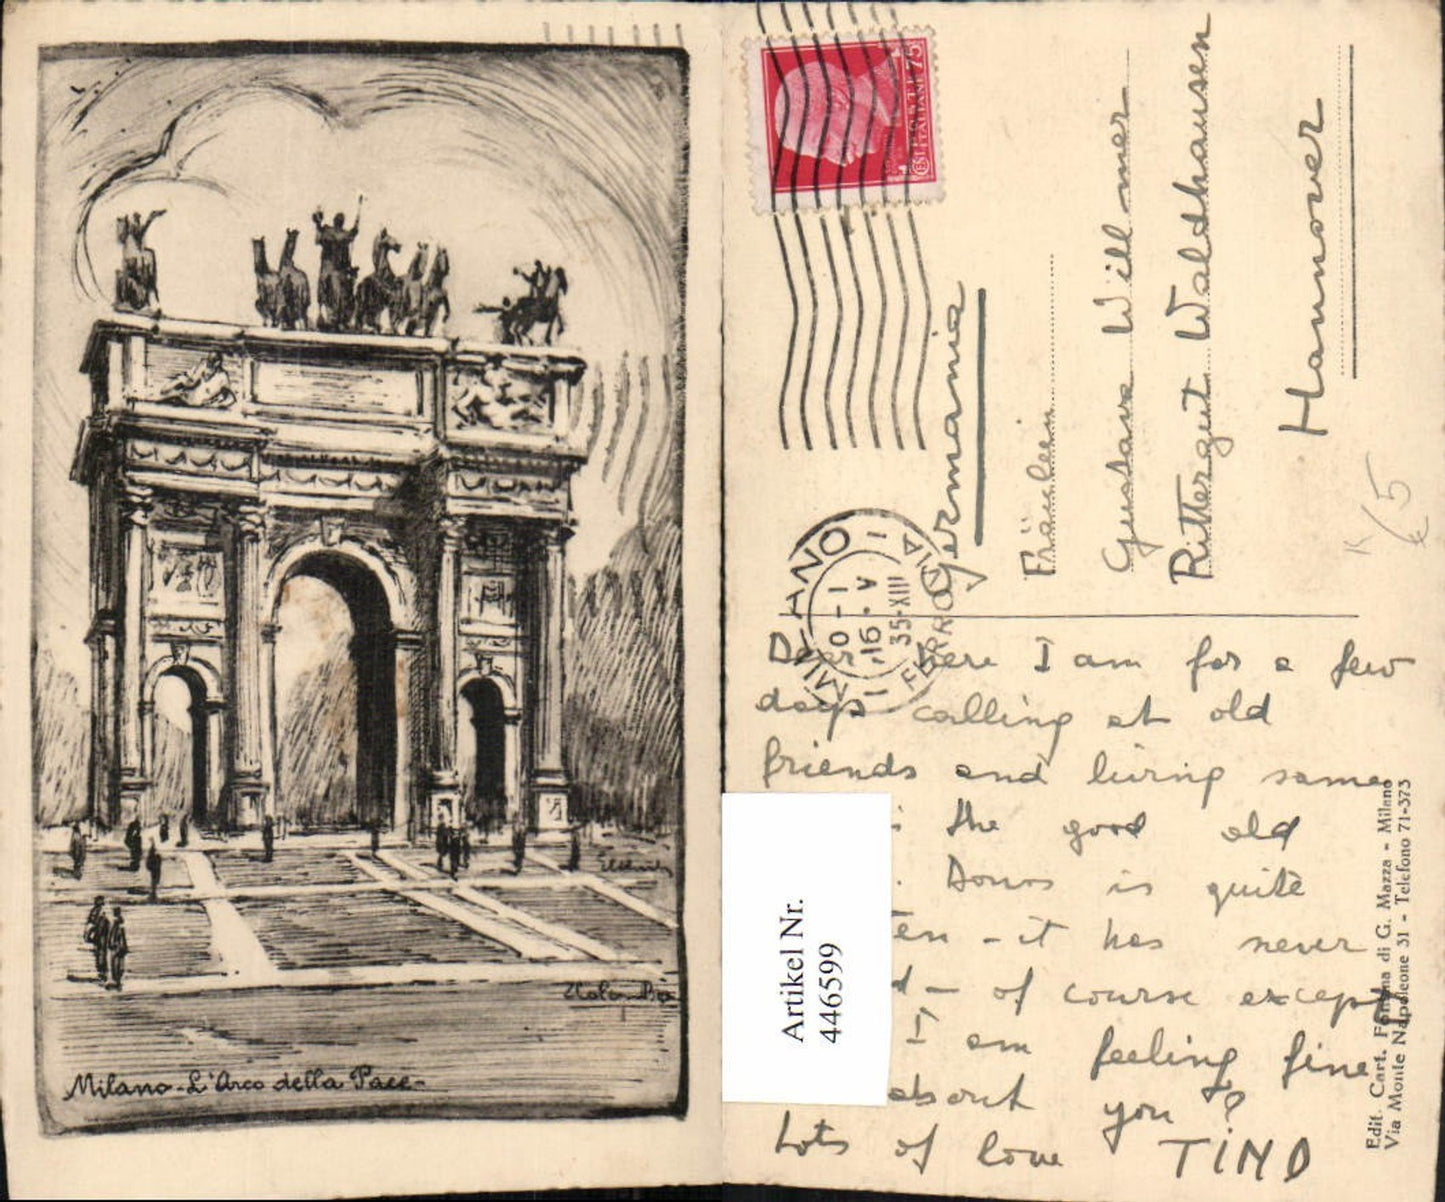 Milano - L'Arco della Pace -
POSTE ITALIANE
75
MILANO
FERROVIA
10 - 1
16 · V
35-XIII
Germania
Fräulein
Gustave Willmer
Rittergut Waldthausen
Hannover
5
Dear Here I am for a few
days calling at old
friends and living same
the good old
is quite
- it has never
- of course except
I am feeling fine
about you?
Lots of love TINO
Artikel Nr.
446599
Edit. Cart. Fontana di G. Mazza - Milano
Via Monte Napoleone 31 - Telefono 71-373